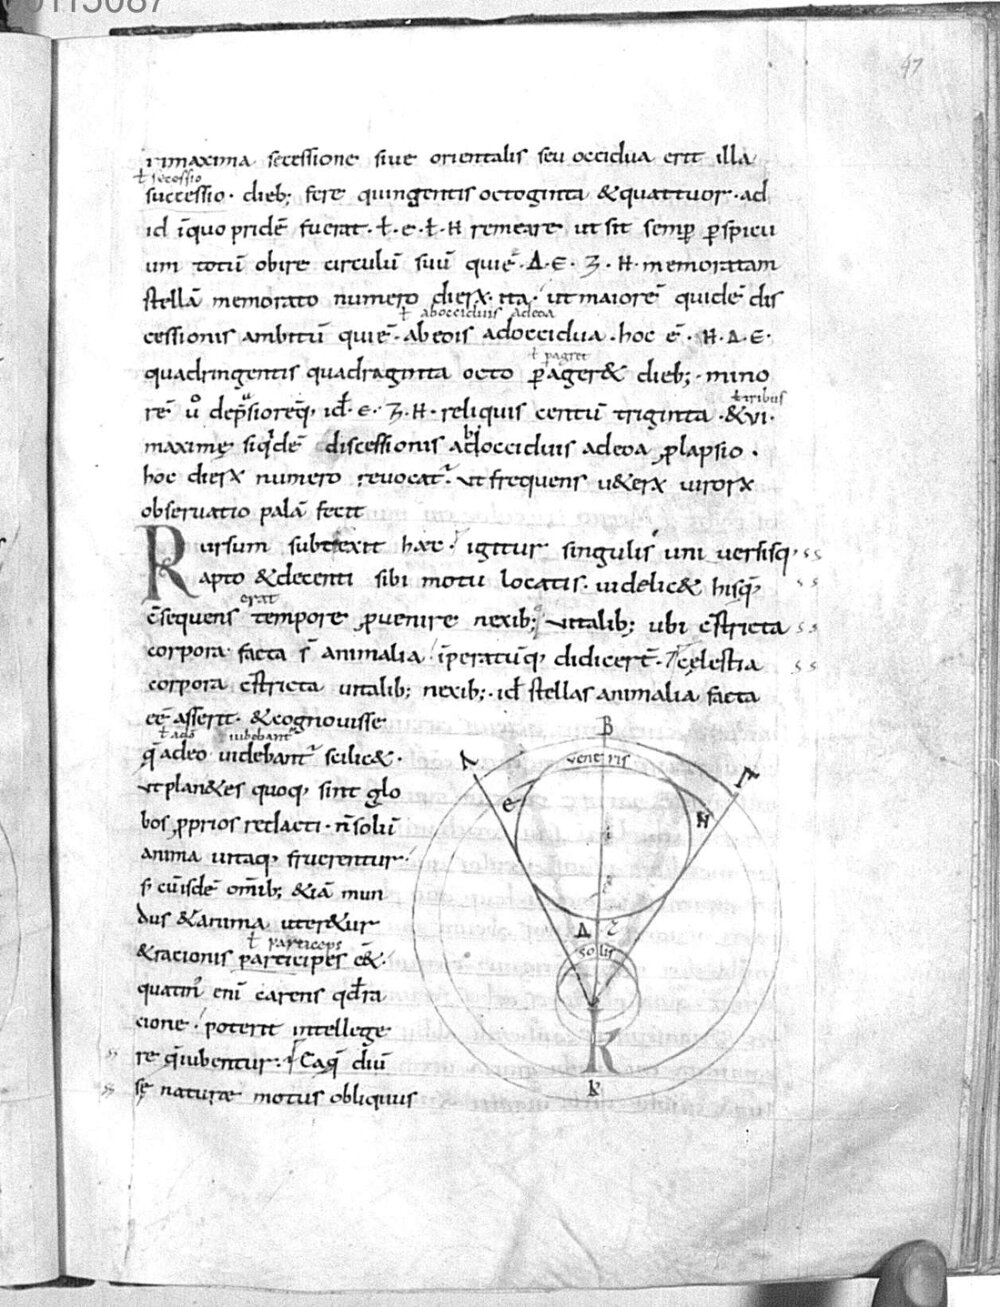 0113087
47
rimaxima secessione siue orientalis seu occidua erit illa
ł secessio
successio· dieb; fere quingentis octoginta &quattuor· ad
id īquo pridē fuerat· ł· e· ł· H remeare ut sit semp pspicu
um totū obire circulū suū quiē· Δ· E· Z· H· memoratam
stellā memorato numero dierx· ita· ut maiorē quidē dis
ł aboccidius adeoa
cessionis ambitū quiē· abeois adoccidua· hoc ē· H· Δ· E·
ł pagret
quadringentis quadraginta octo pager& dieb;· mino
ł tribus
rē ū depsioreq, id· e· Z· H· reliquis centū triginta ·&vi·
maxime siqdē discessionis adocciduis adeoa plapsio·
hoc dierx numero reuocat· ut frequens u&erx uirorx
obseruatio palā fecit
Rursum subtexit hæc· igitur singulis uni uersisq,
Rapto &decenti sibi motu locatis· uidelic& hisq,
erat
c̄sequens tempore puenire nexib; uitalib; ubi c̄stricta
corpora facta s̄ animalia īperatūq, didicert̄· celestia
corpora c̄stricta uitalib; nexib;· id stellas animalia facta
eē asserit· &cognouisse
ł adō iubebant
q̄adeo uidebant scilic&·
ut plan&es quoq, sint glo
bos pprios redacti· n̄solū
anima uitaq, fruerentur
s; cuīsdē omīb; &iā mun
dus &anima uter&ur
ł particeps
&racionis participes e&·
quatin enī carens qdra
cione· poterit intellege
re q̄iubentur· Eaq̄ diū
sę naturæ motus obliquus
B
A
Γ
veneris
e
H
Δ
Z
solis
K
k